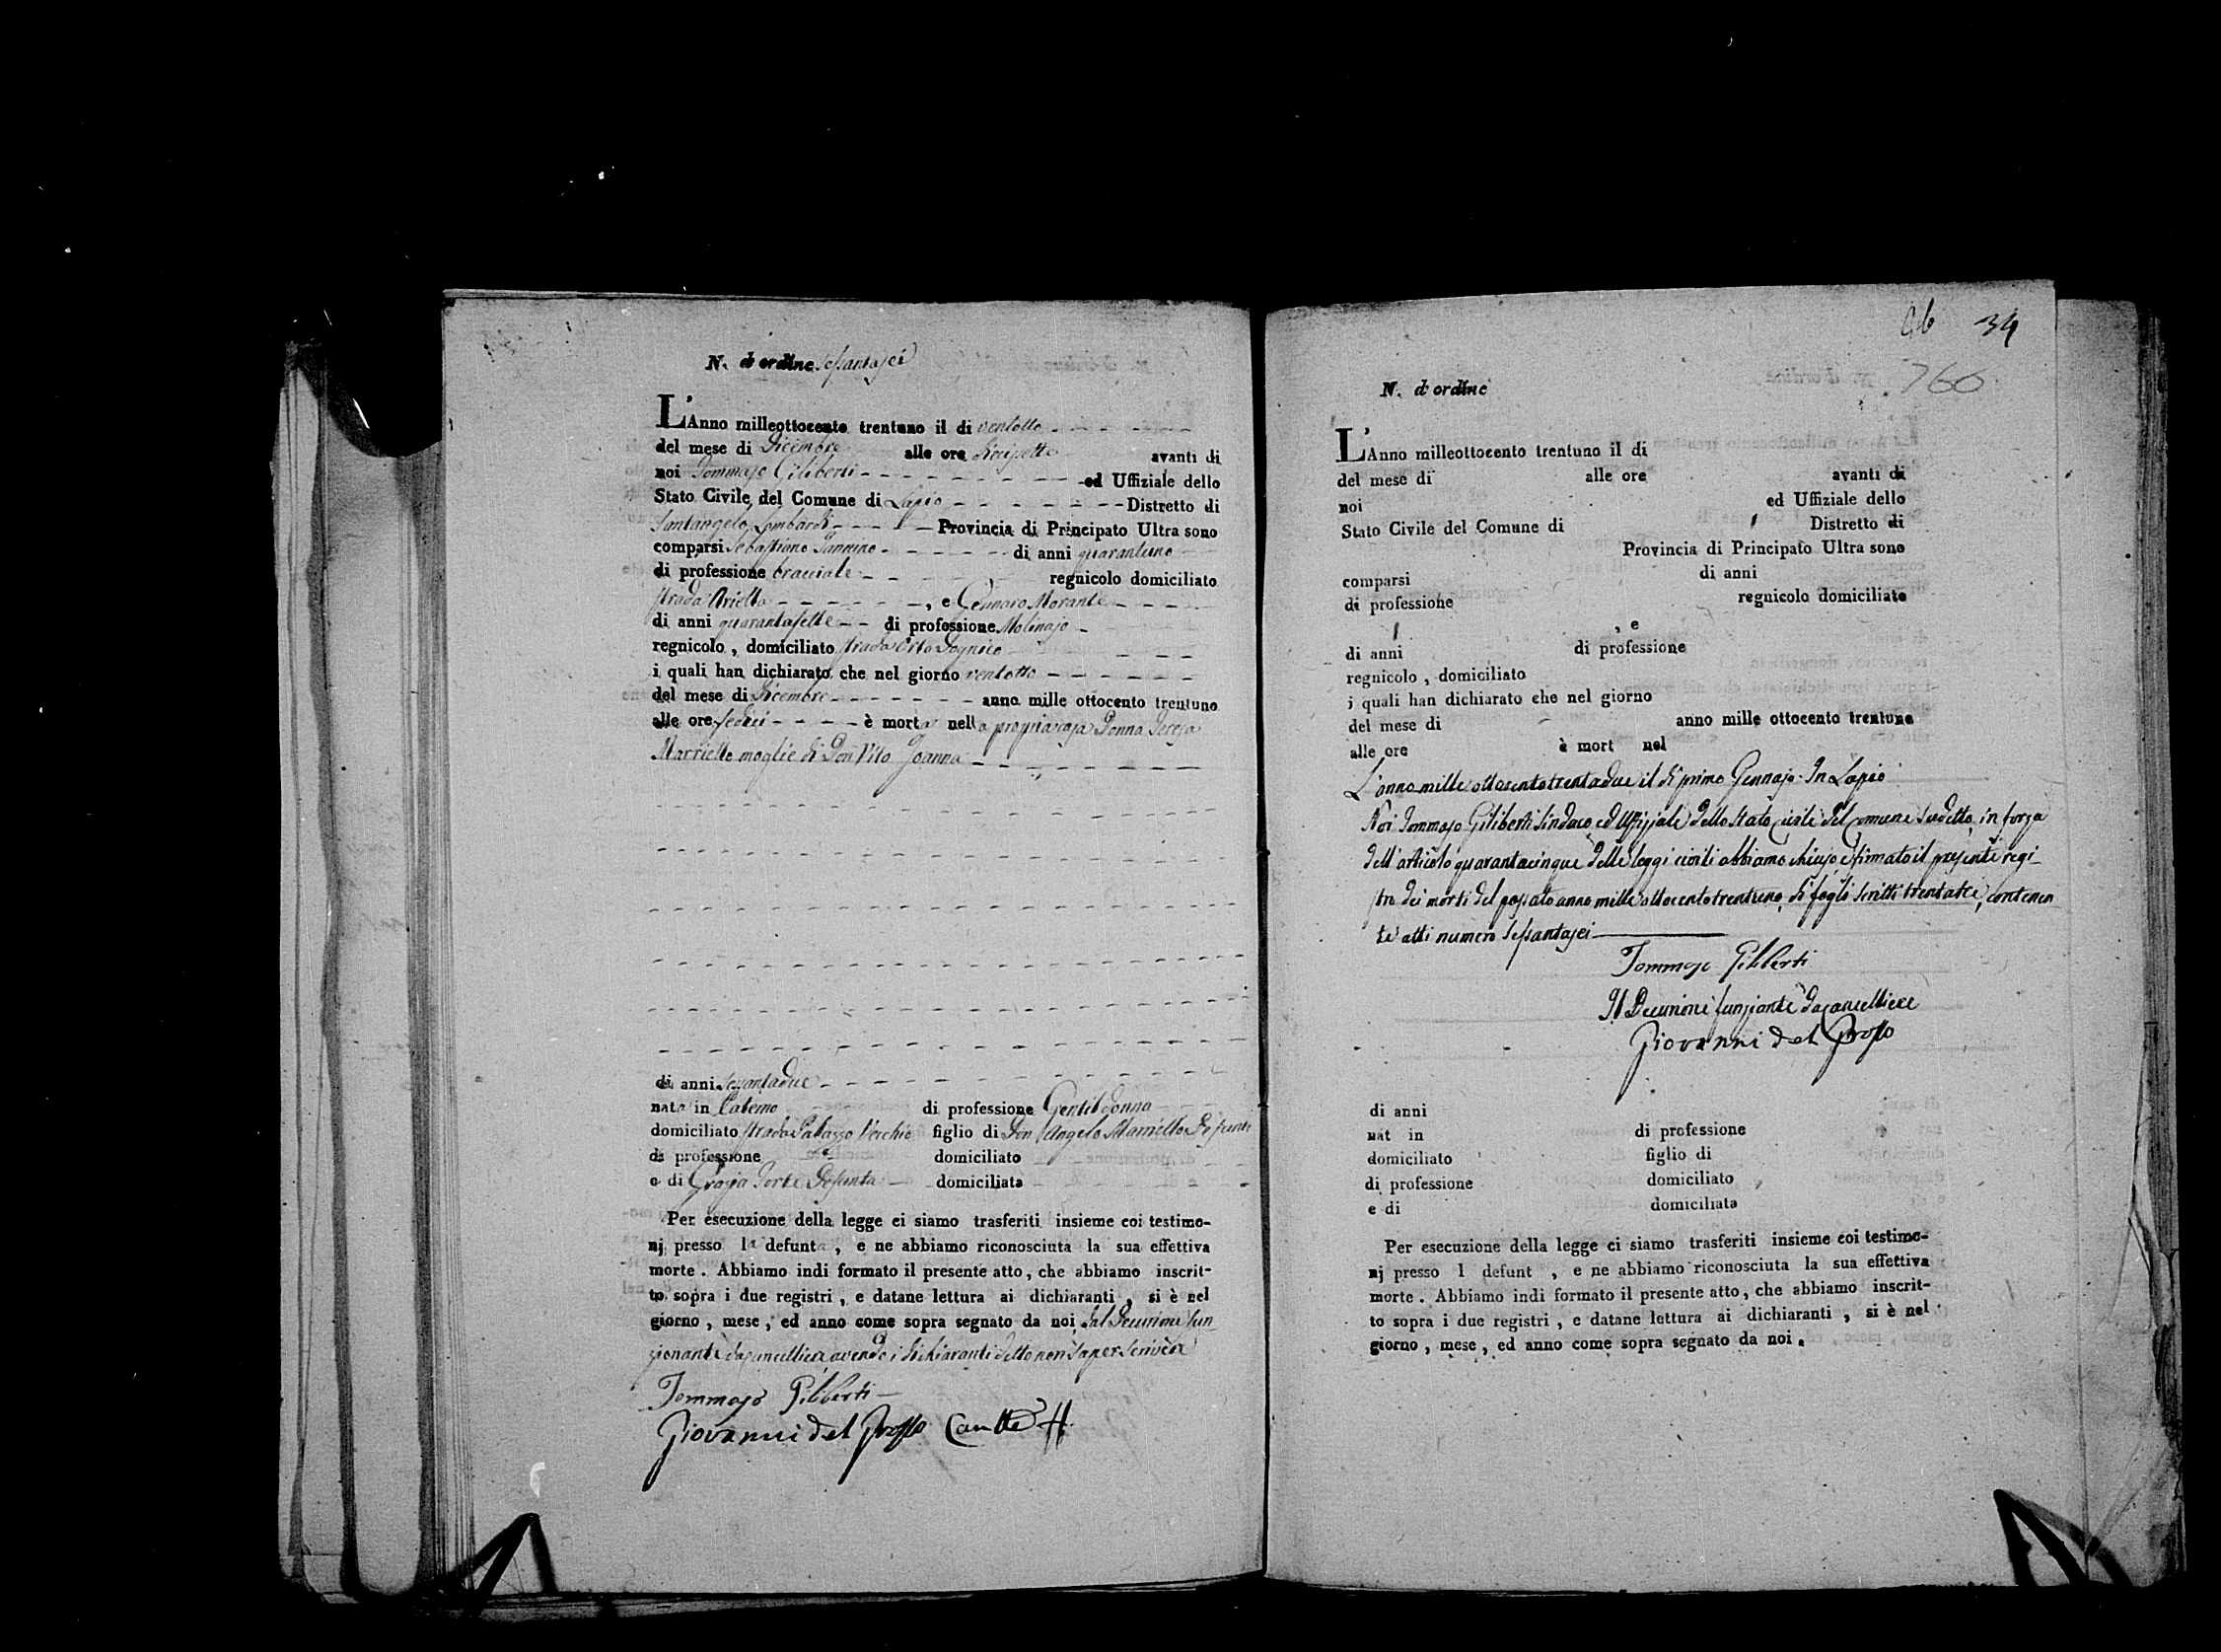 N. d'ordine sessantasei
L'Anno milleottocento trentuno il di ventotto
del mese di Dicembre alle ore diecisette avanti di
noi Tommaso Giliberti ed Uffiziale dello
Stato Civile del Comune di Lapio Distretto di
Santangelo Lombardi Provincia di Principato Ultra sono
comparsi Sebastiano Iannino di anni quarantuno
di professione bracciale regnicolo domiciliato
strada Ariella , e Gennaro Morante
di anni quarantasette di professione Molinajo
regnicolo , domiciliato strada Orto
i quali han dichiarato che nel giorno ventotto
del mese di Dicembre anno mille ottocento trentuno
alle ore sedici è morta nella propria casa Donna Teresa
Marriello moglie di Don Vito Joanna
di anni sessantadue
nata in Paterno di professione Gentildonna
domiciliato strada Palazzo Vecchio figlio di Don Angelo Marriello Defunto
di professione domiciliato
e di Grazia Forte Defunta domiciliata
Per esecuzione della legge ci siamo trasferiti insieme coi testimo-
nj presso la defunta , e ne abbiamo riconosciuta la sua effettiva
morte . Abbiamo indi formato il presente atto , che abbiamo inscrit-
to sopra i due registri , e datane lettura ai dichiaranti , si è nel
giorno , mese , ed anno come sopra segnato da noi dal Decurione fun
zionante da Cancelliere avendo i dichiaranti detto non saper scrivere
Tommaso Giliberti
Giovanni del Grosso Canc.re
34
766
N. d'ordine
L'Anno milleottocento trentuno il di
del mese di alle ore avanti di
noi ed Uffiziale dello
Stato Civile del Comune di Distretto di
Provincia di Principato Ultra sono
comparsi di anni
di professione regnicolo domiciliato
, e
di anni di professione
regnicolo , domiciliato
i quali han dichiarato che nel giorno
del mese di anno mille ottocento trentuno
alle ore è mort nel
L'anno mille ottocento trentadue il dì primo Gennajo. In Lapio
Noi Tommaso Giliberti Sindaco, ed Uffiziale dello Stato civile del Comune sudetto, in forza
dell'articolo quarantacinque delle leggi civili abbiamo chiuso, e firmato il presente regi-
stro dei morti del passato anno mille ottocento trentuno, di fogli scritti trentatrè, contenen
te atti numero sessantasei
Tommaso Giliberti
Il Decurione funzionante da Cancelliere
Giovanni del Grosso
di anni
nat in di professione
domiciliato figlio di
di professione domiciliato
e di domiciliata
Per esecuzione della legge ci siamo trasferiti insieme coi testimo-
nj presso l defunt , e ne abbiamo riconosciuta la sua effettiva
morte . Abbiamo indi formato il presente atto , che abbiamo inscrit-
to sopra i due registri , e datane lettura ai dichiaranti , si è nel
giorno , mese , ed anno come sopra segnato da noi .